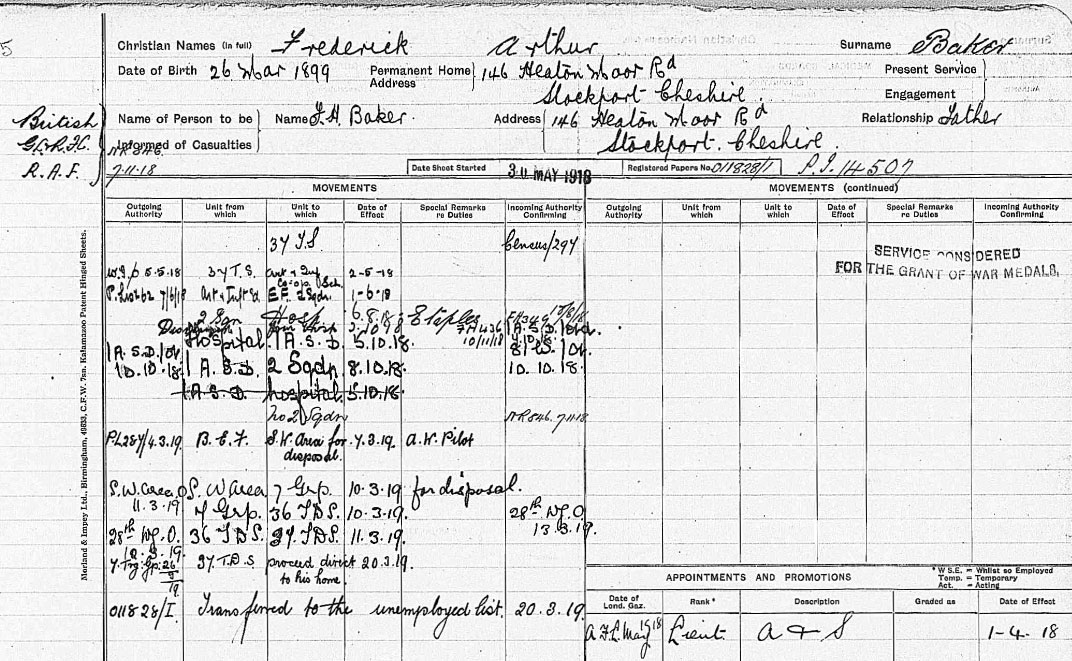 Christian Names (in full) Frederick Arthur Surname Baker
Date of Birth 26 Mar 1899 Permanent Home Address 146 Heaton Moor Rd Stockport Cheshire. Present Service Engagement
British
R.A.F.
Name of Person to be Informed of Casualties Name F. H. Baker. Address 146 Heaton Moor Rd Stockport. Cheshire. Relationship Father
NR 846.
7-11-18
Date Sheet Started 30 MAY 1918 Registered Papers No 011828/1 P.I. 14507
MOVEMENTS MOVEMENTS (continued)
Outgoing Authority Unit from which Unit to which Date of Effect Special Remarks re Duties Incoming Authority Confirming Outgoing Authority Unit from which Unit to which Date of Effect Special Remarks re Duties Incoming Authority Confirming
37 T.S Census/297
SERVICE CONSIDERED
FOR THE GRANT OF WAR MEDALS.
5.5.18 37 T.S. 2-5-18
7/6/18 E.F. 2 Sqdn. 1-6-18
2 Sqn Hosp 6.8.18 Etaples
Hospital 1 A.S.D. 5.10.18. 10/11/18
1 A.S.D./Or. 10.10.18. 1 A.S.D. 2 Sqdn 8.10.18. 10.10.18.
1 A.S.D. hospital 5.10.18.
No 2 Sqdn NR 846. 7-11-18
PL287/4.3.19. B.E.F. S.W. Area for disposal. 7.3.19. a.W. Pilot
S.W. Area 11.3.19 S.W Area 7 Grp. 10.3.19 for disposal.
7 Grp. 36 T.D.S. 10.3.19. 28th Wg. O. 13.3.19.
28th Wg. O. 36 T.D.S. 37 T.D.S. 11.3.19.
37 T.D.S. proceed direct to his home. 20.3.19.
011828/I. Transferred to the unemployed list. 20.3.19.
APPOINTMENTS AND PROMOTIONS
* W S.E. = Whilst so Employed
Temp. = Temporary
Act. = Acting
Date of Lond. Gaz. Rank* Description Graded as Date of Effect
A F L May 1918 Lieut. A & S 1-4-18
Morland & Impey Ltd., Birmingham, C.F.W. 7sn. Kalamazoo Patent Hinged Sheets.